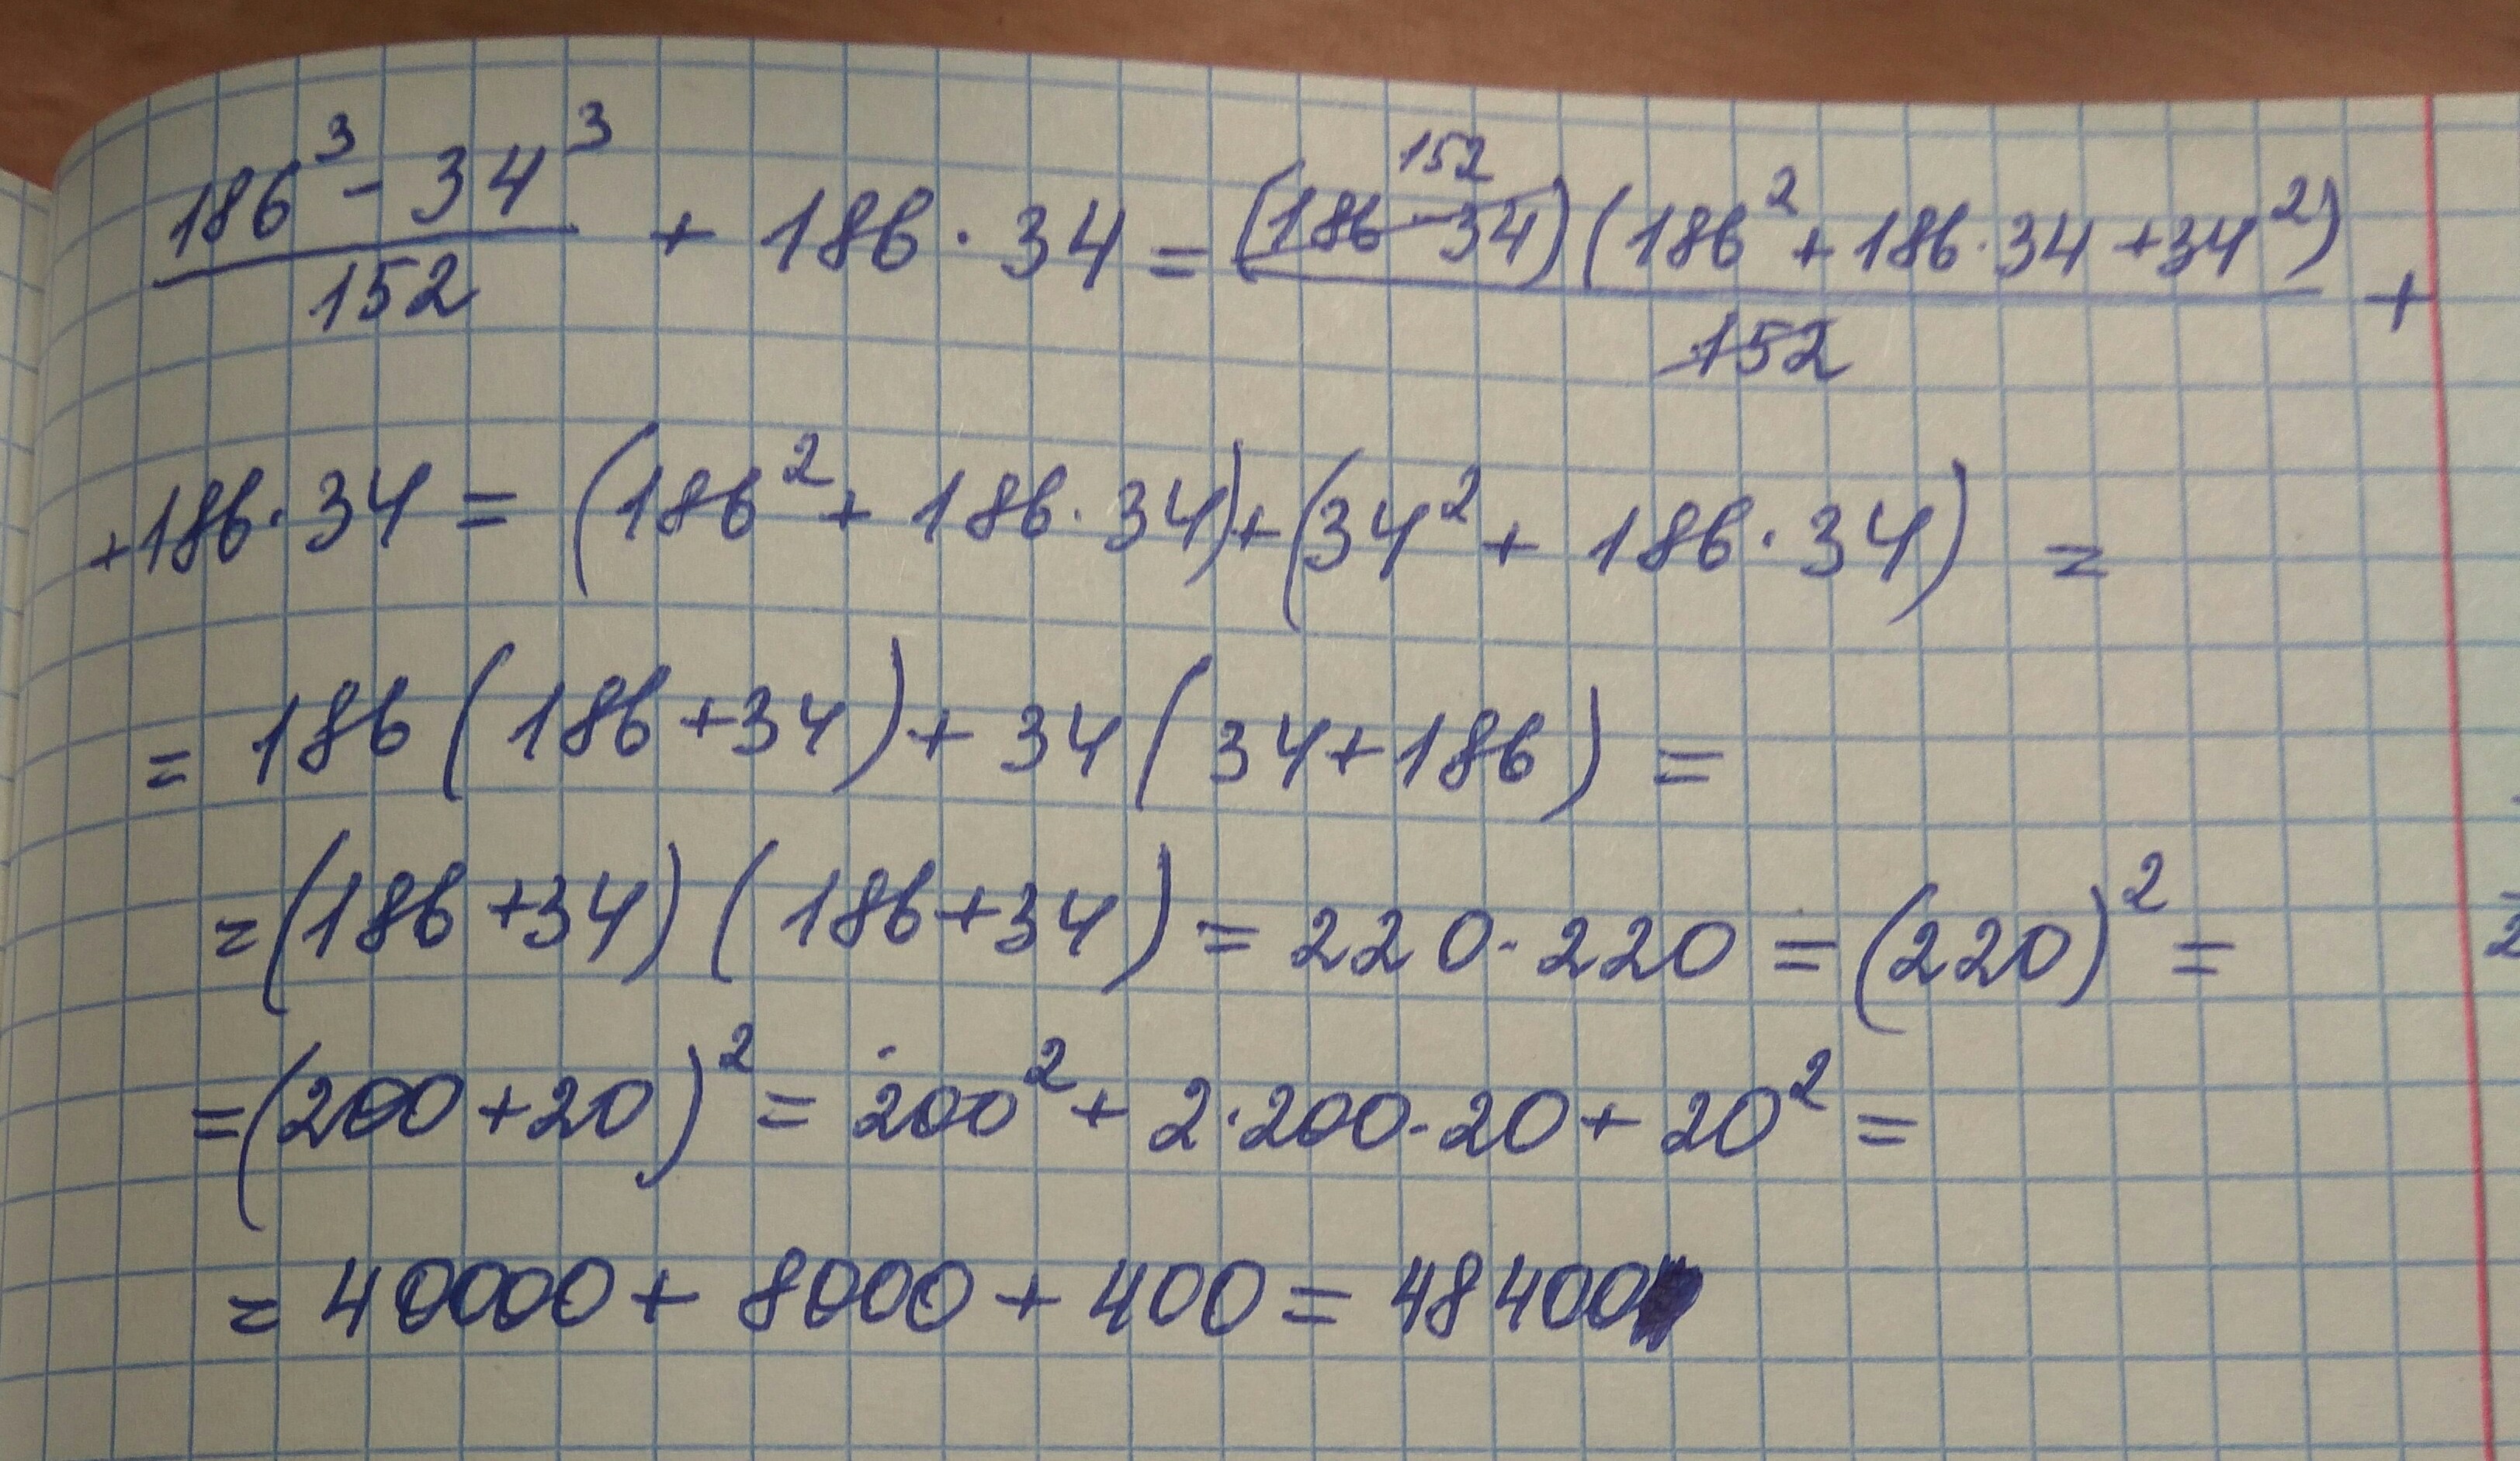 (186³ - 34³)/152 + 186 · 34 = (186 - 34) 152 (186² + 186 · 34 + 34²)/152 +
+ 186 · 34 = (186² + 186 · 34) + (34² + 186 · 34) =
= 186 (186 + 34) + 34 (34 + 186) =
= (186 + 34) (186 + 34) = 220 · 220 = (220)² =
= (200 + 20)² = 200² + 2 · 200 · 20 + 20² =
= 40000 + 8000 + 400 = 48400